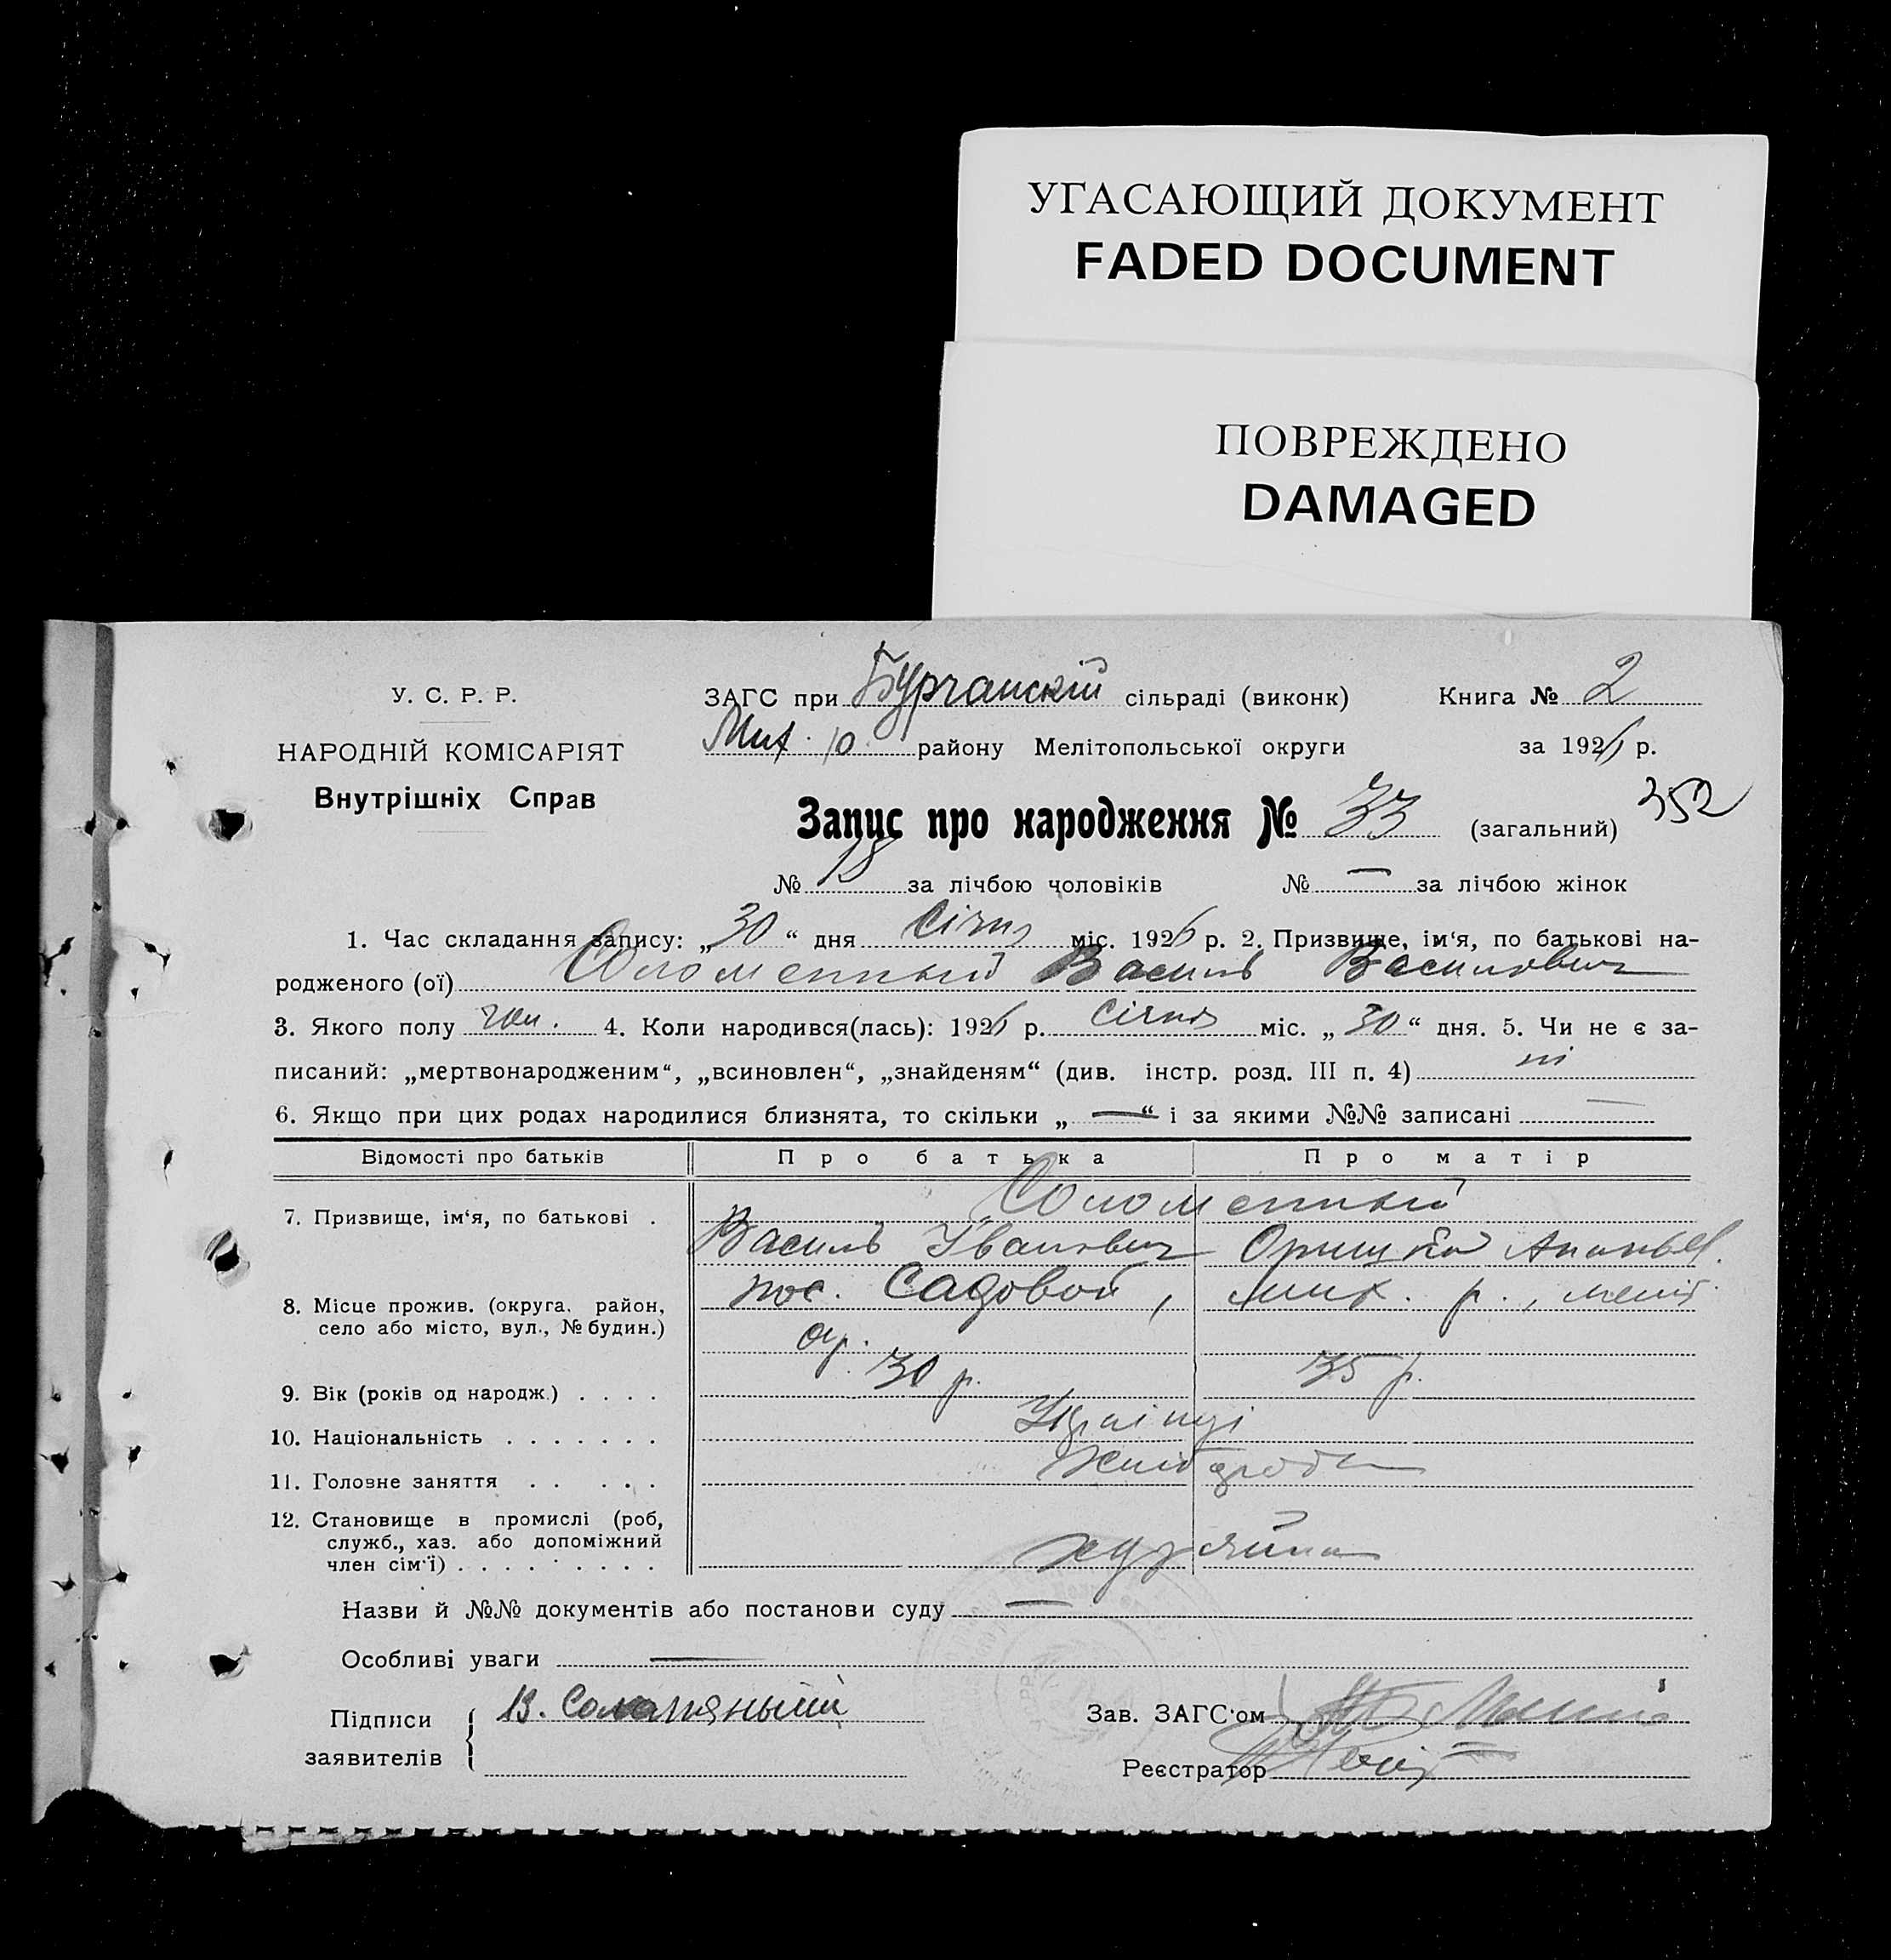 УГАСАЮЩИЙ ДОКУМЕНТ
FADED DOCUMENT
ПОВРЕЖДЕНО
DAMAGED
У. С. Р. Р.
НАРОДНІЙ КОМІСАРІЯТ
Внутрішніх Справ
ЗАГС при Бурчанскій сільраді (виконк) Книга № 2
Мих. р. району Мелітопольської округи за 1926 р.
352
Запис про народження № 33 (загальний)
№ 18 за лічбою чоловіків № — за лічбою жінок
1. Час складання запису: „30“ дня Січня міс. 1926 р. 2. Призвище, ім‘я, по батькові на-
родженого (ої) Соломенный Василь Васильович
3. Якого полу чол. 4. Коли народився(лась): 1926 р. Січня міс. „30“ дня. 5. Чи не є за-
писаний: „мертвонародженим“, „всиновлен“, „знайденям“ (див. інстр. розд. III п. 4) ні
6. Якщо при цих родах народилися близнята, то скільки „—“ і за якими №№ записані —
Відомості про батьків Про батька Про матір
7. Призвище, ім‘я, по батькові . Соломенный
Василь Іванович Ананьев.
8. Місце прожив. (округа, район, село або місто, вул., № будин.) пос. Садовой, мих. р., меліт.
ок.
9. Вік (років од народж.) . . . . 30 р. 35 р.
10. Національність . . . . . . . Українці
11. Головне заняття . . . . . Хлібороби
12. Становище в промислі (роб, служб., хаз. або допоміжний член сім‘ї) . . . . . . . .
Назви й №№ документів або постанови суду —
Особливі уваги —
Підписи заявителів В. Соломяный
Зав. ЗАГС‘ом
Реєстратор